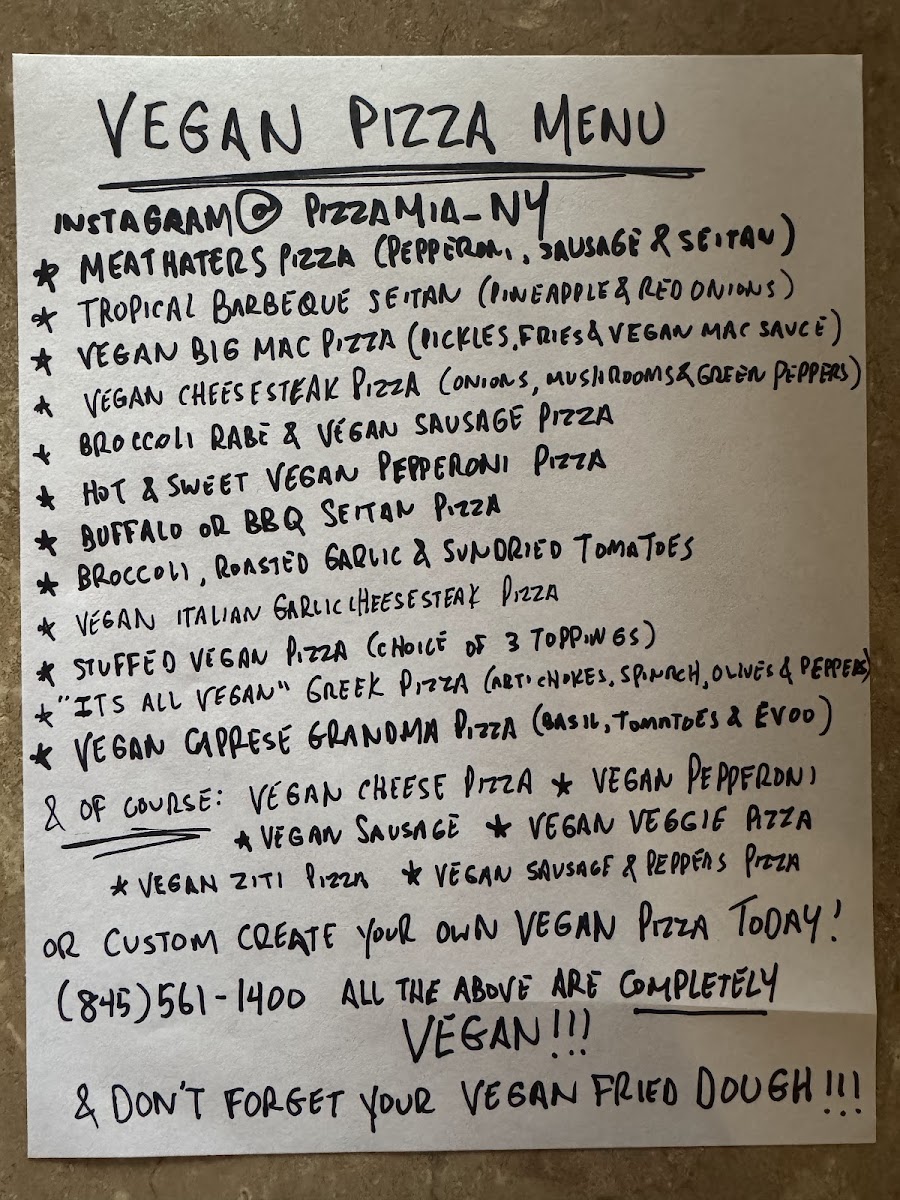 VEGAN PIZZA MENU
INSTAGRAM@ PIZZAMIA_NY
★ MEATHATERS PIZZA (PEPPERONI, SAUSAGE & SEITAN)
★ TROPICAL BARBEQUE SEITAN (PINEAPPLE & RED ONIONS)
★ VEGAN BIG MAC PIZZA (PICKLES, FRIES & VEGAN MAC SAUCE)
★ VEGAN CHEESESTEAK PIZZA (ONIONS, MUSHROOMS & GREEN PEPPERS)
★ BROCCOLI RABE & VEGAN SAUSAGE PIZZA
★ HOT & SWEET VEGAN PEPPERONI PIZZA
★ BUFFALO OR BBQ SEITAN PIZZA
★ BROCCOLI, ROASTED GARLIC & SUNDRIED TOMATOES
★ VEGAN ITALIAN GARLIC CHEESESTEAK PIZZA
★ STUFFED VEGAN PIZZA (CHOICE OF 3 TOPPINGS)
★ "ITS ALL VEGAN" GREEK PIZZA (ARTICHOKES, SPINACH, OLIVES & PEPPERS)
★ VEGAN CAPRESE GRANDMA PIZZA (BASIL, TOMATOES & EVOO)
& OF COURSE: VEGAN CHEESE PIZZA ★ VEGAN PEPPERONI
★ VEGAN SAUSAGE ★ VEGAN VEGGIE PIZZA
★ VEGAN ZITI PIZZA ★ VEGAN SAUSAGE & PEPPERS PIZZA
OR CUSTOM CREATE YOUR OWN VEGAN PIZZA TODAY!
(845)561-1400 ALL THE ABOVE ARE COMPLETELY
VEGAN!!!
& DON'T FORGET YOUR VEGAN FRIED DOUGH!!!